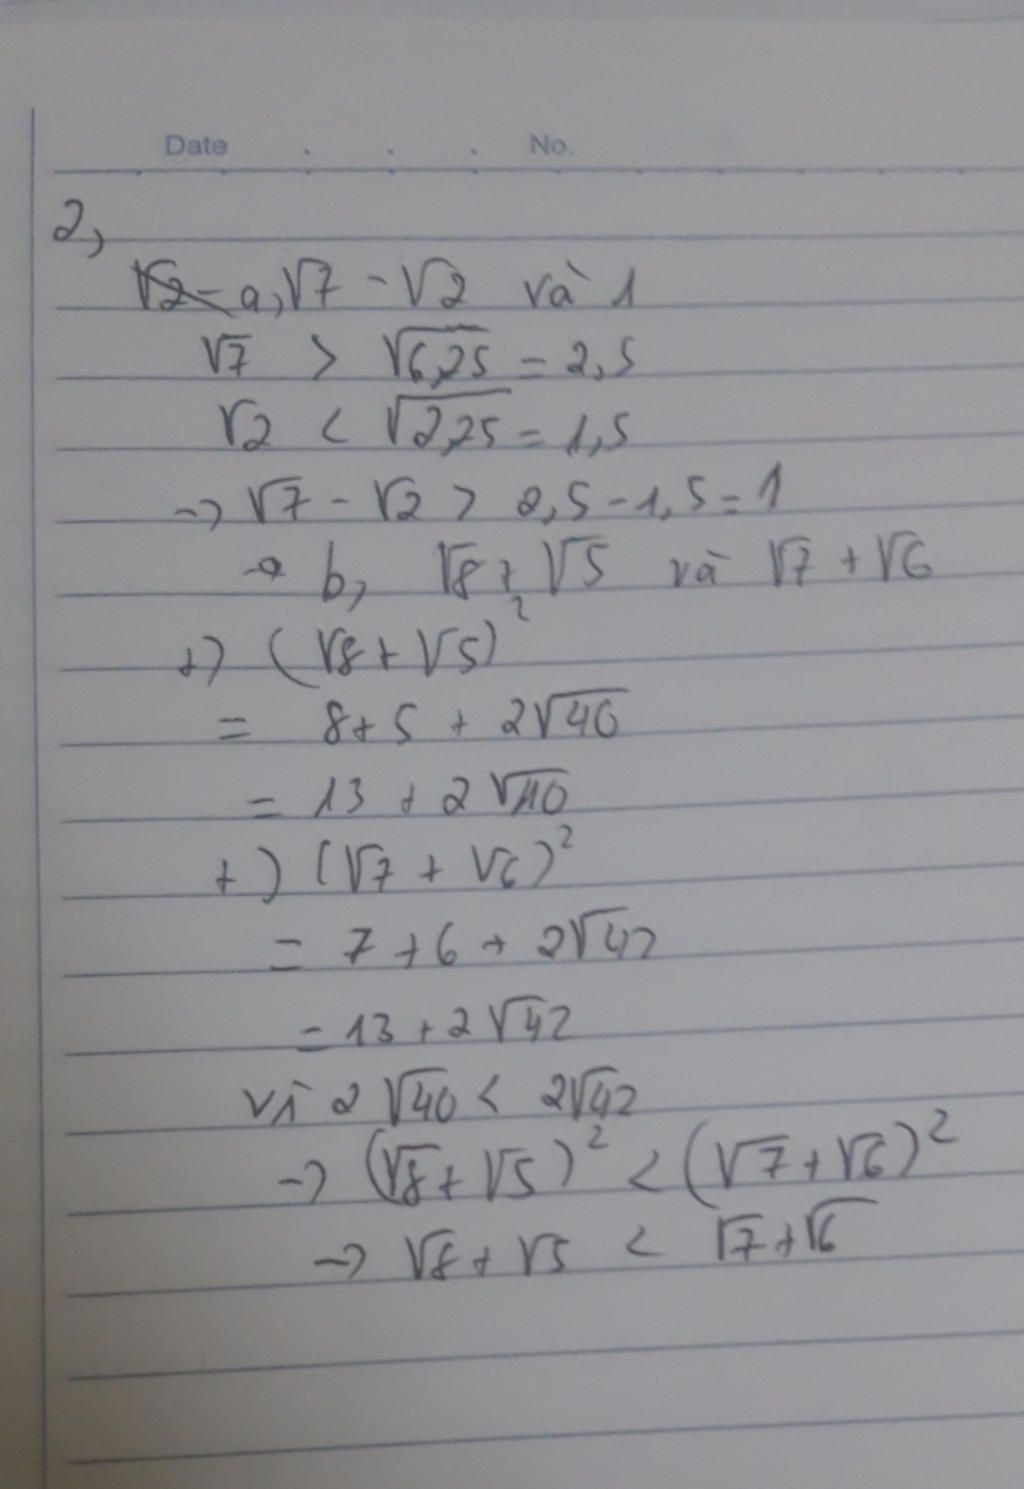 Date . . . No.
2,
√2 - a, √7 - √2 và 1
√7 > √6,25 = 2,5
√2 < √2,25 = 1,5
→ √7 - √2 > 2,5 - 1,5 = 1
→ b, √8 + √5 và √7 + √6
+) (√8 + √5)²
= 8 + 5 + 2√40
= 13 + 2√40
+) (√7 + √6)²
= 7 + 6 + 2√42
= 13 + 2√42
vì 2√40 < 2√42
→ (√8 + √5)² < (√7 + √6)²
→ √8 + √5 < √7 + √6